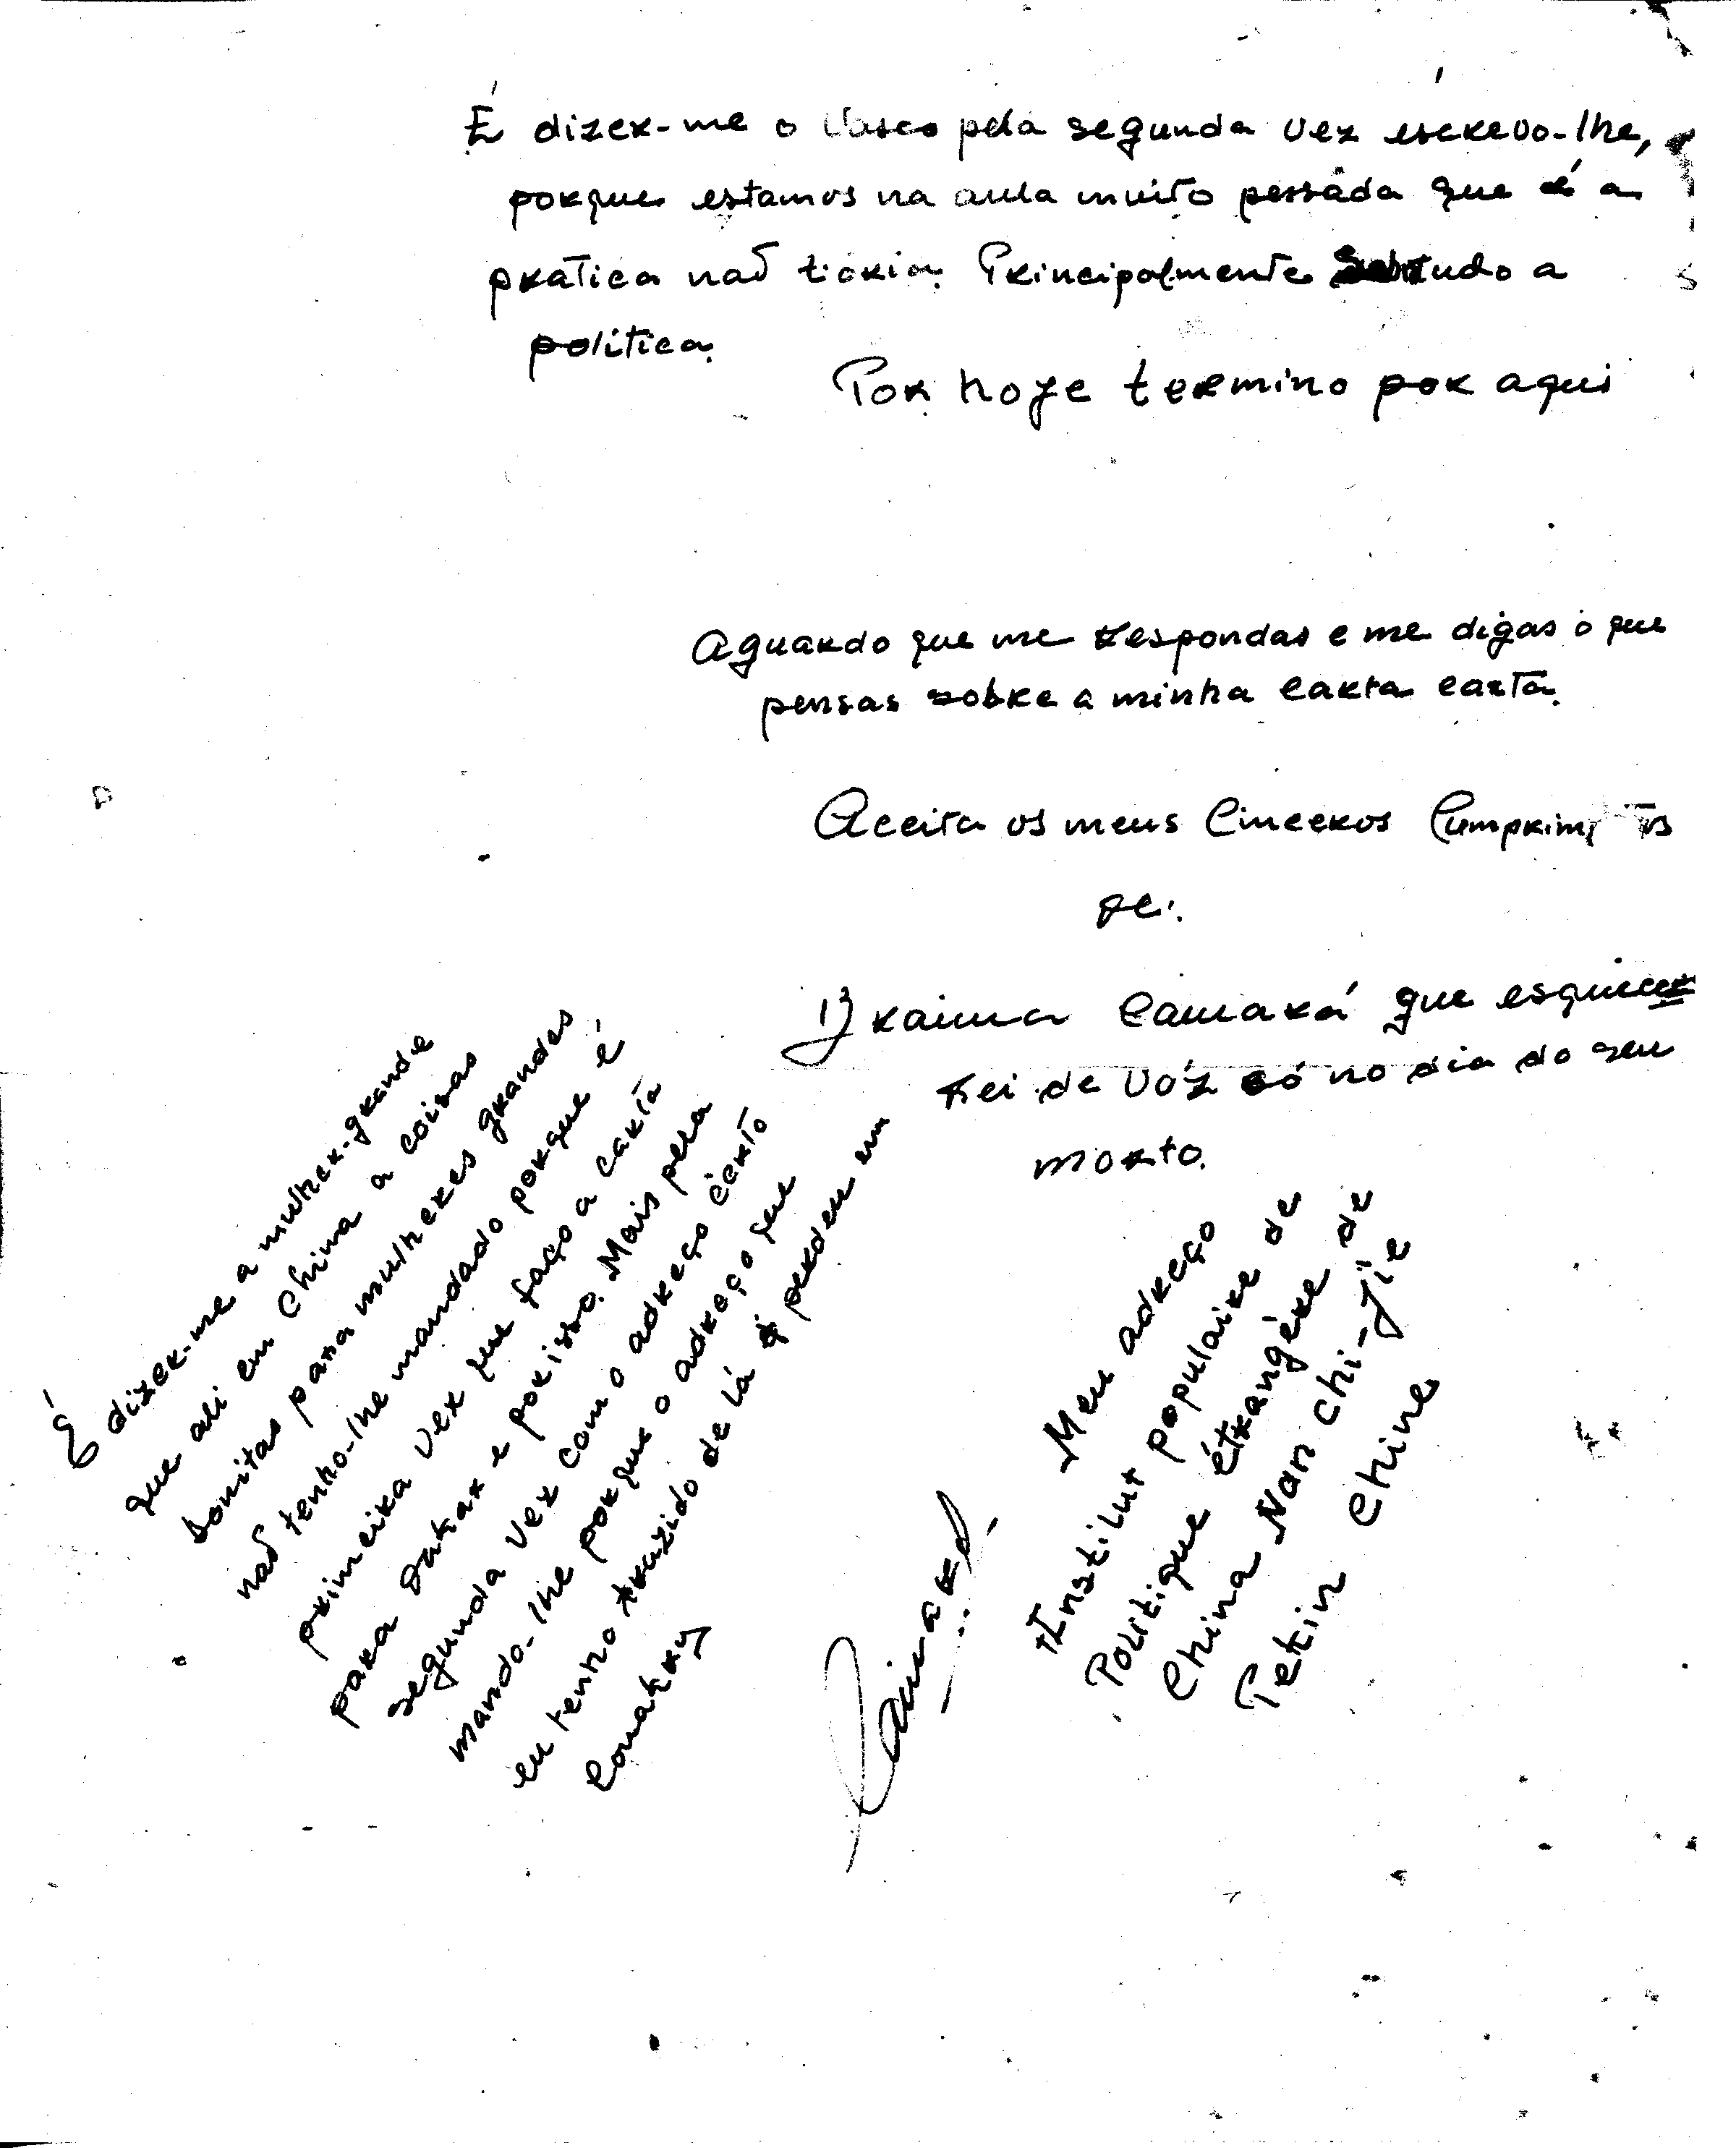 É dizer-me o Vasco pela segunda vez escrevo-lhe,
porque estamos na aula muito pessáda que é a
pratica naõ tioria. Principalmente Sobtudo a
politica.
Por hoje termino por aqui
Aguardo que me respondas e me digas o que
pensas sobre a minha carta carta.
Aceita os meus Cinceros Cumprim tos
de:
Braima Camará que esquice
rei de vóz só no dia do seu
morto.
É dizer-me a mulher-grande
que ali em China a coisas
bonitas para mulheres grandes
naõ tenho-lhe mandado porque é
primeira vez que faço a carta
para Dakar e porisso. Mais pela
segunda vez com o adreço certo
mando-lhe porque o adreço que
eu tenho truzido de lá perdeu em
Conakry
Meu adreço
Institut populaire de
Politique étrangére de
China Nan Chi-Jie
Pekin Chine